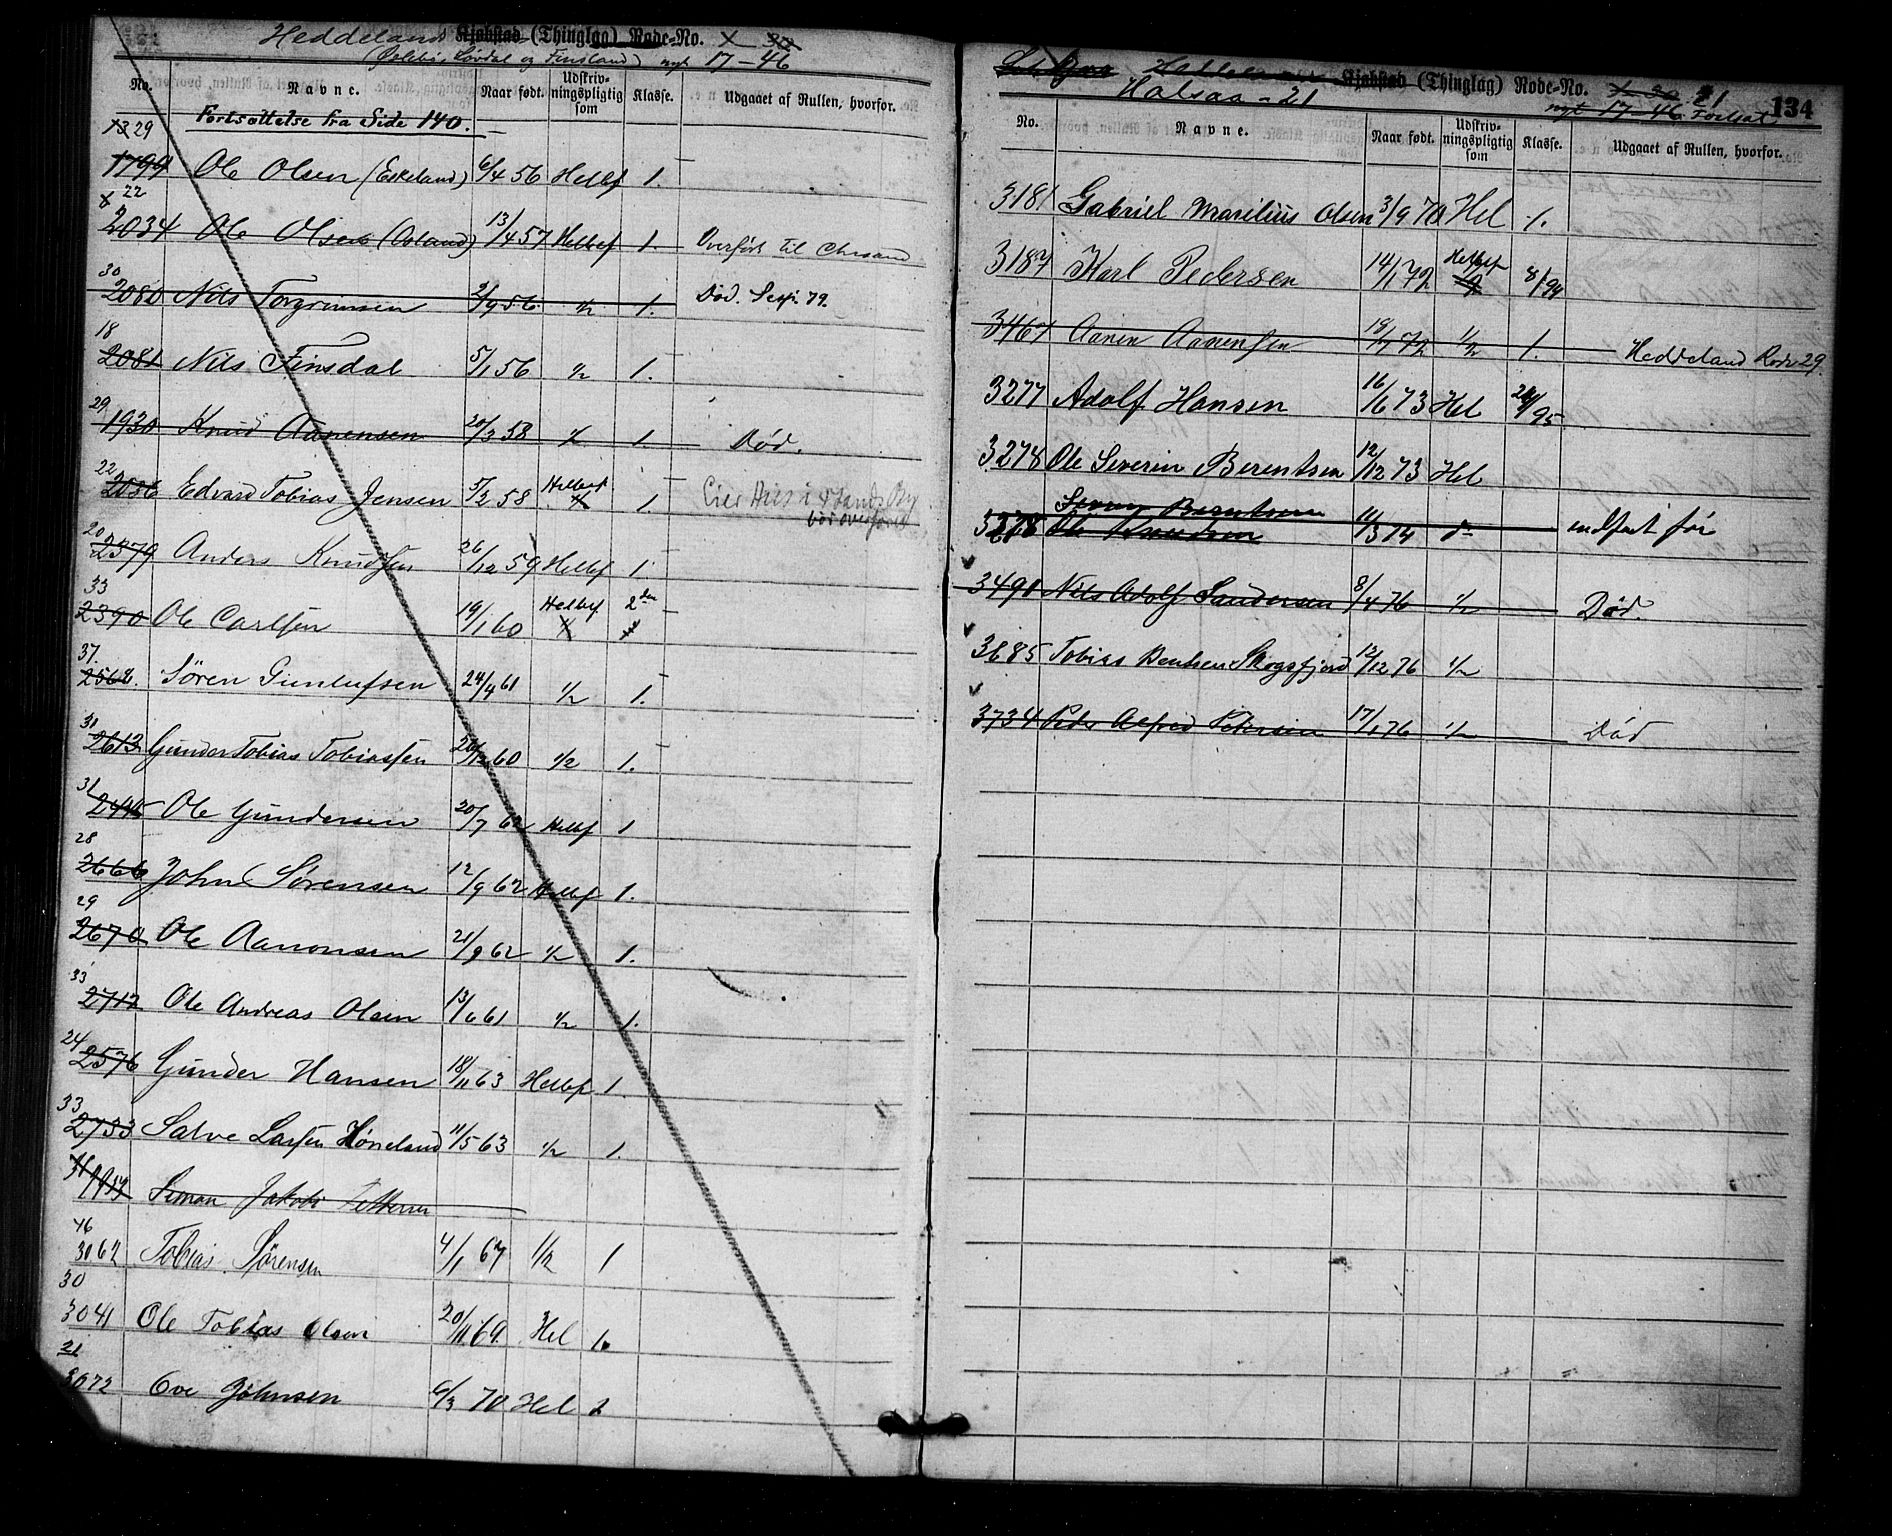 Heddelands Kjøbstad (Thinglag) Rode-No. X 30
(Øslebø, Løvdal og Finsland) nyt 17-46
No. Navne. Naar født. Udskriv-ningspligtig som Klasse. Udgaaet af Rullen, hvorfor.
Fortsættelse fra Side 140.
13 29
1799 Ole Olsen (Eskeland) 6/4 56 Helbef 1.
22
2034 Ole Olsen (Aaland) 13/4 57 Helbef 1. Overført til Chrsand
30
2080 Nils Torgrimsen 2/9 56 1/2 1. Død. Sept. 79.
18
2081 Nils Finsdal 5/1 56 1/2 1.
29
1930 Knud Aanensen 20/3 58 1/2 1. Død.
22
2036 Edvard Tobias Jensen 5/2 58 Helbef 1
20
2379 Anders Knudsen 26/12 59 Helbef 1
33
2390 Ole Carlsen 19/1 60 Helbef 2den
37.
2568. Søren Gunlufsen 24/4 61 1/2 1.
31
2613 Gunder Tobias Tobiassen 20/12 60 1/2 1.
31
2445 Ole Gundersen 20/7 62 Helbf 1
28
2666 John Sørensen 12/9 62 Helbef 1.
29
2670 Ole Aanonsen 21/9 62 1/2 1.
33
2712 Ole Andreas Olsen 13/6 61 1/2 1.
24
2576 Gunder Hansen 18/11 63 Helbef 1.
33
2753 Salve Larsen Høneland 11/5 63 1/2 1.
Simon Jakob
46
3062 Tobias Sørensen 4/1 67 1/2 1
30
3041 Ole Tobias Olsen 20/11 69. Hel 1.
21
3072 Ove Johnsen 6/3 70 Hel 2
Kjøbstad (Thinglag) Rode-No. X 30 21
Halsaa - 21 nyt 17-46 Fortsat
134
No. Navne. Naar født. Udskriv-ningspligtig som Klasse. Udgaaet af Rullen, hvorfor.
3181 Gabriel Marelius Olsen 3/9 70 Hel 1.
3187 Karl Pedersen 14/1 72 Helbef 8/94
3467 Aanen Aanensen 18/7 72 1/2 1. Heddeland Rode 29.
3277 Adolf Hansen 16/6 73 Hel 24/95
3278 Ole Severin Berentsen 12/12 73 Hel
Severin Berntsen
3278 Ole Knudsen 11/3 74 do indført før
3490 Nils Adolf Sandersen 8/4 76 1/2 Død.
3685 Tobias Bentsen Skogsfjord 12/12 76 1/2
3734 Peder Alfred Petersen 17/1 76 1/2 Død